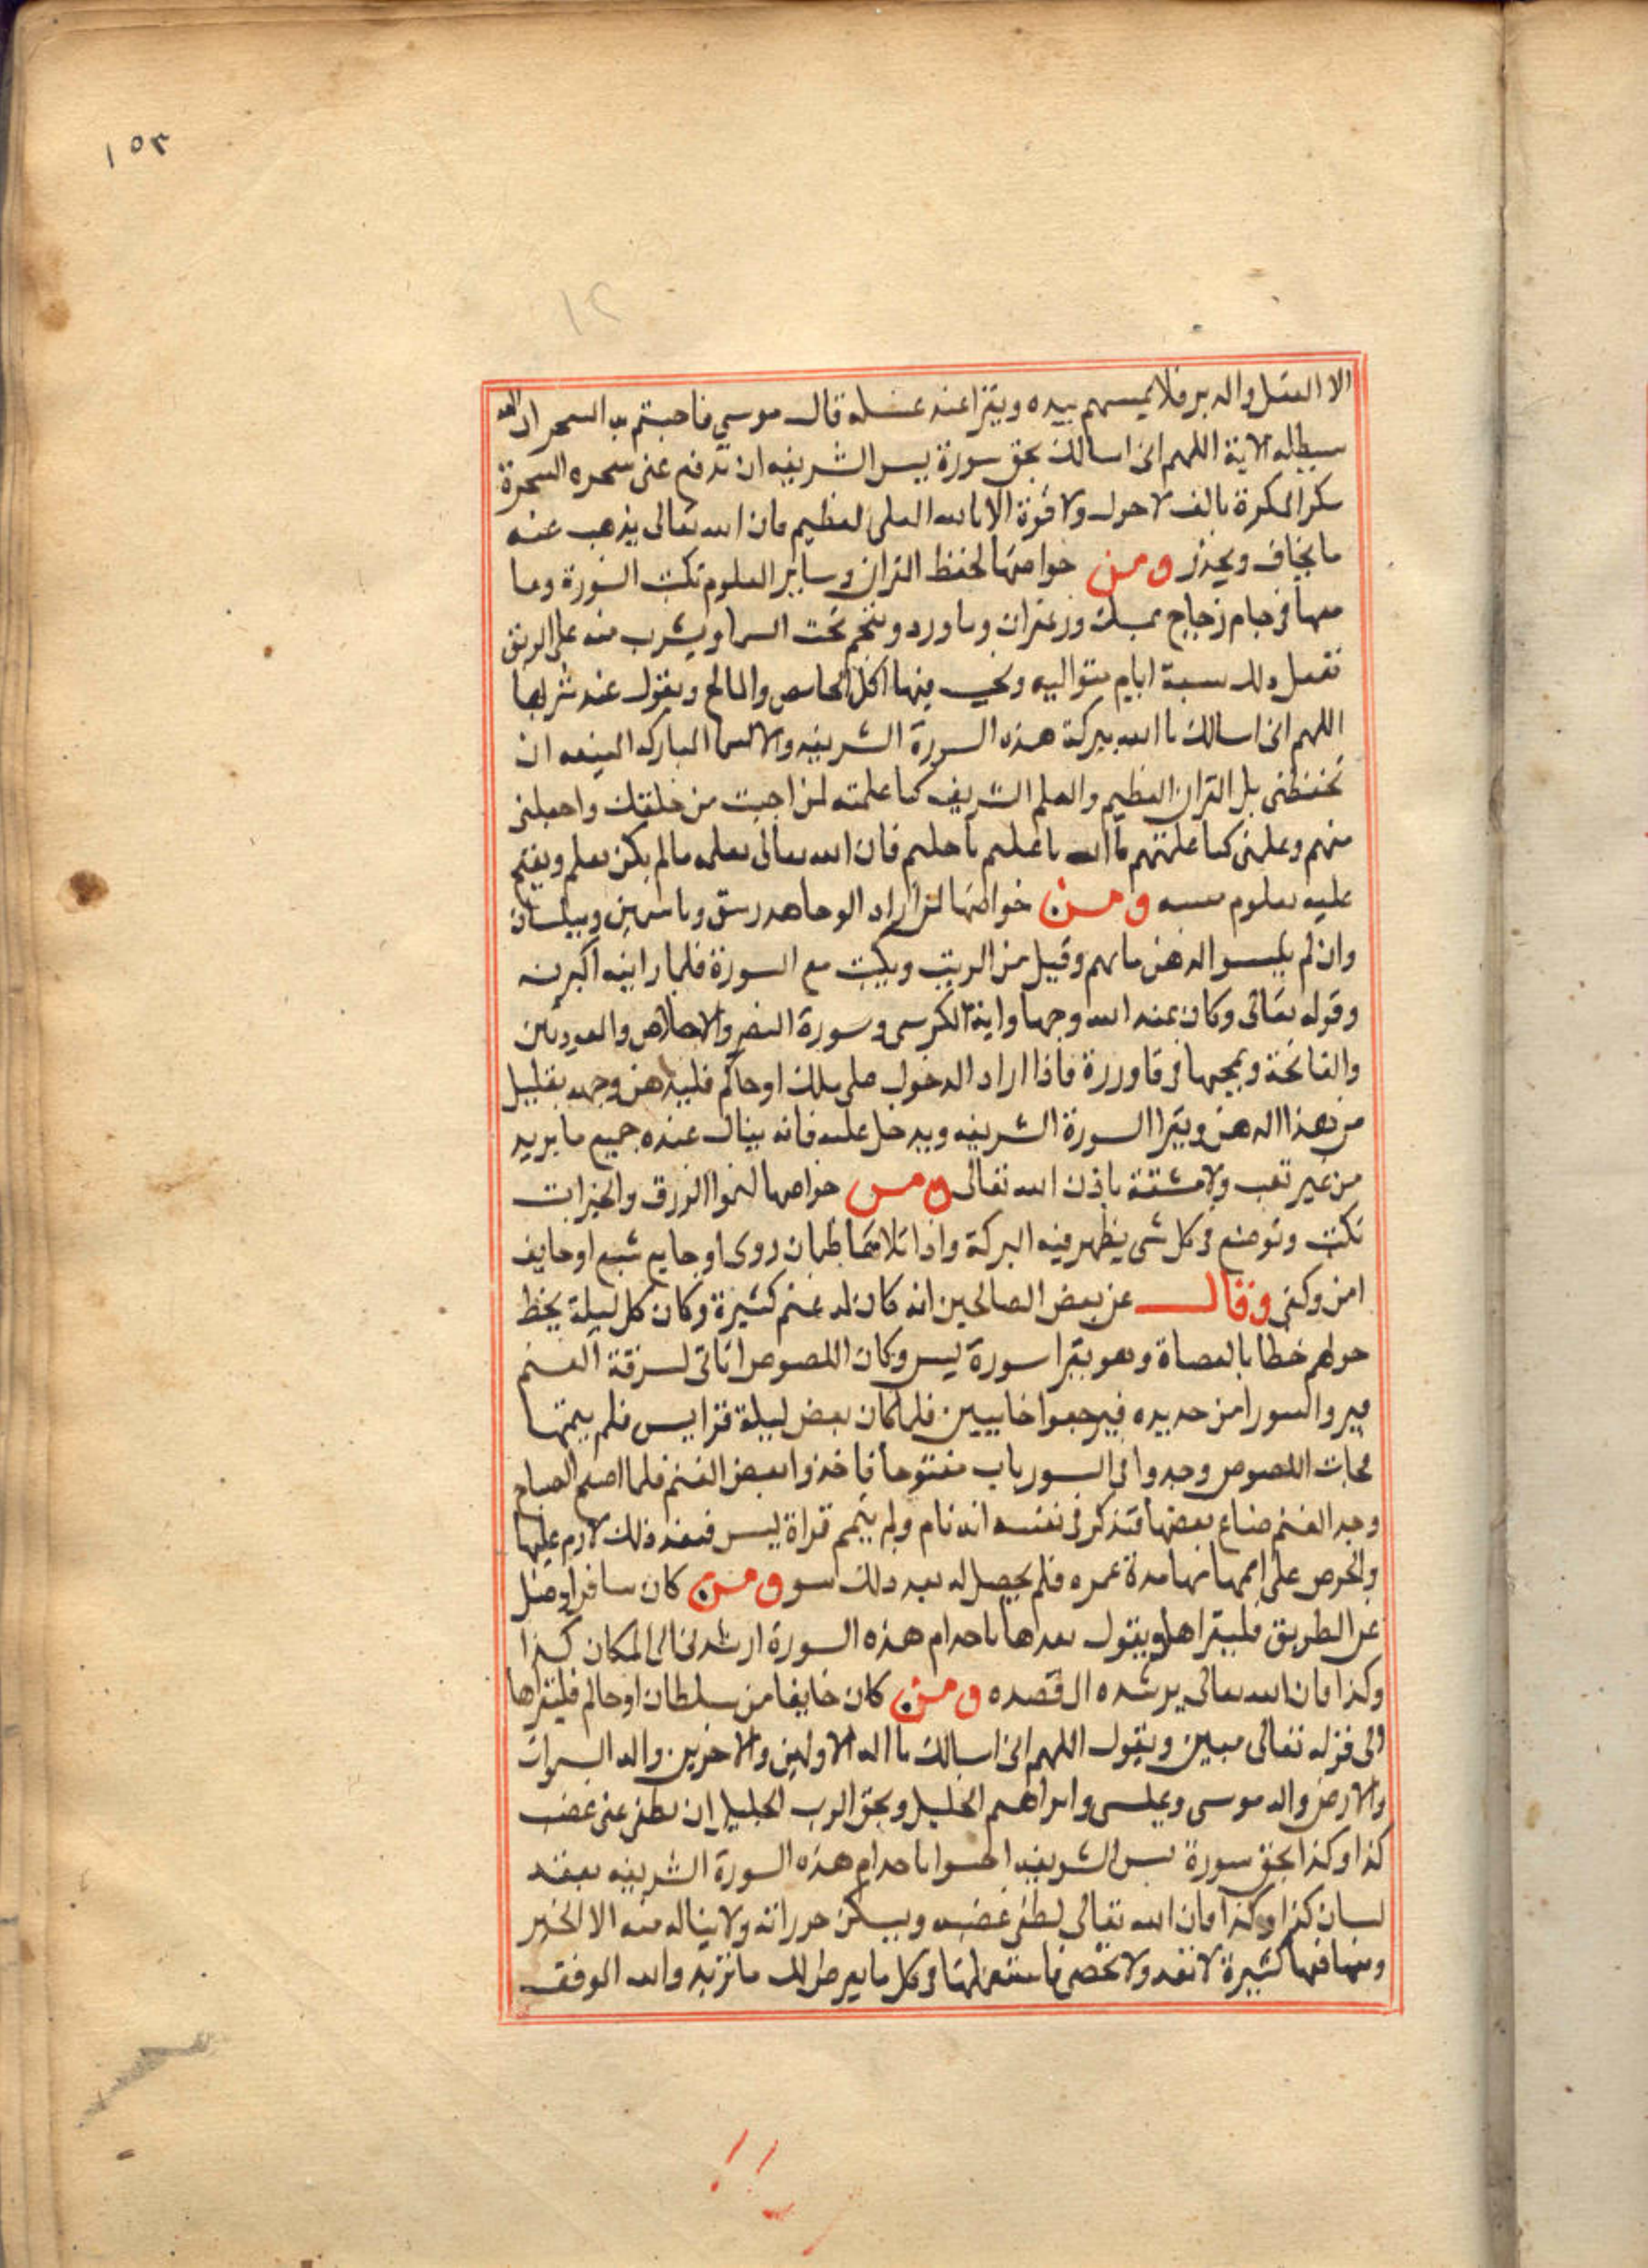 ١٥٣
١٢
الا القبل والدبر فلا يمسهم بيده ويقرا عند غسله قال موسي ماجيتم به السحر ان الله
سيبطله الاية اللهم انى اسالك بحق سورة يس الشريفه ان تدفع عنى سحره السحرة
مكر المكرة بالف لاحول ولا قوة الا بالله العلى لعظيم فان الله تعالى يذهب عنه
ما يخاف ويحذر ومن خواصها لحفظ القران وساير العلوم تكتب السورة وما
معها فى جام زجاج بمسك وزعفران وماورد وينجم تحت السما ويشرب منه على الريق
تفعل ذلك سبعة ايام متواليه ويجب فيها اكل الحامض والمالح ويقول عند شربها
اللهم انى اسالك يا الله ببركة هذه السورة الشريفه والاسما المباركه المنيعه ان
تحفظنى بل القران العظيم والعلم الشريف كما علمته لمن احببت من خلقك واجعلنى
منهم وعلمنى كما علمتهم يا الله يا عليم يا حليم فان الله تعالى يعلمه مالم يكن يعلم ويفتح
عليه بعلوم ومن خواصها لمن اراد الوجاهه وياسمين وبيلسان
وان لم يتيسر الدهن مابهم وقيل من الزيت ويكتب مع السورة فلما راينه اكبرنه
وقوله تعالى وكان عند الله وجيها واية الكرسى وسورة النصر والاخلاص والمعودتين
والفاتحة ويمحيها فى قاورره فاذا اراد الدخول على ملك او حاكم فليدهن وجهه بقليل
من هذا الدهن ويقرا السورة الشريفه ويدخل عليه فانه ينال عنده جميع ما يريد
من غير تعب ولا مشقة باذن الله تعالى ومن خواصها لنموا الرزق والخيرات
تكتب وتوضع فى كل شى يظهر فيه البركة واذا تلاها ظمان روى او جايع شبع او خايف
امن وكفى وقال عن بعض الصالحين انه كان له غنم كثيرة وكان كل ليلة يخط
حولهم خطا بالعصاة وهو يقرا سورة يس وكان اللصوص اتاتى لسرقة الغنم
فيروا السور امن حديده فيرجعوا خايبين فلما كان بعض ليلة قرا يس فلم يتمها
فجات اللصوص وجدوا فى السور باب مفتوحا فاخذوا بعض الغنم فلما اصبح الصباح
وجد الغنم ضاع بعضها فتذكر فى نفسه انه نام ولم يتمم قراة يس فبعد ذلك لازم عليها
والحرص على اتمامها مدة عمره فلم يحصل له بعد ذلك سو ومن كان سافرا وضل
عن الطريق فليقراها ويقول بعدها ياخدام هذه السورة ارشدنى الى المكان كذا
وكذا فان الله تعالى يرشده الى قصده ومن كان خايفا من سلطان او حاكم فليقراها
الى قوله تعالى مبين ويقول اللهم انى اسالك يا اله الاولين والاخرين واله السموات
والارض واله موسى وعيسى وابراهيم الخليل وبحق الرب الجليل ان تطفى عنى غضب
كذا وكذا بحق سورة يس الشريفه ياخدام هذه السورة الشريفه بعقد
لسان كذا وكذا فان الله تعالى يطفى غضبه ويسكن حررانه ولا يناله منه الا الخير
ومنافعها كثيرة لا تعد ولا تحصى فاستعملها فى كل ما يعرض لك ما تريد والله الموفق